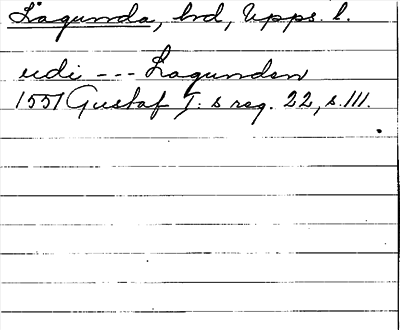 Lagunda, hd, Upps. l.
udi --- Lagunden
1551 Gustaf I:s reg. 22, s. 111.